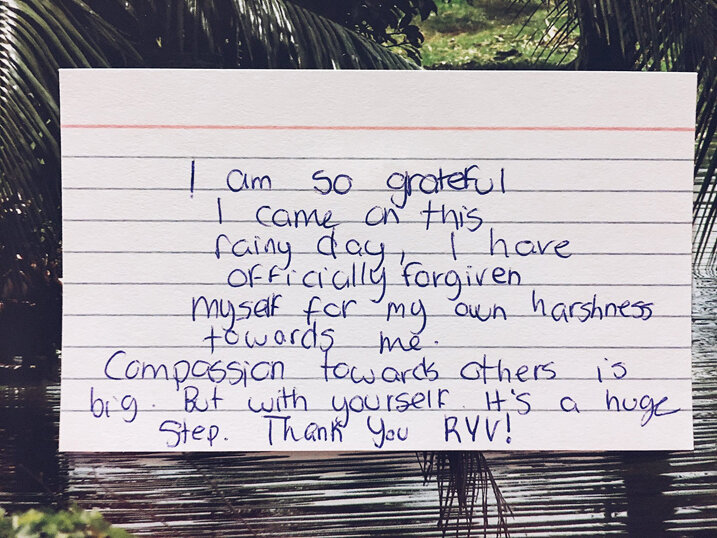 I am so grateful
I came on this
rainy day, I have
officially forgiven
myself for my own harshness
towards me.
Compassion towards others is
big. But with yourself. It's a huge
step. Thank you RYV!